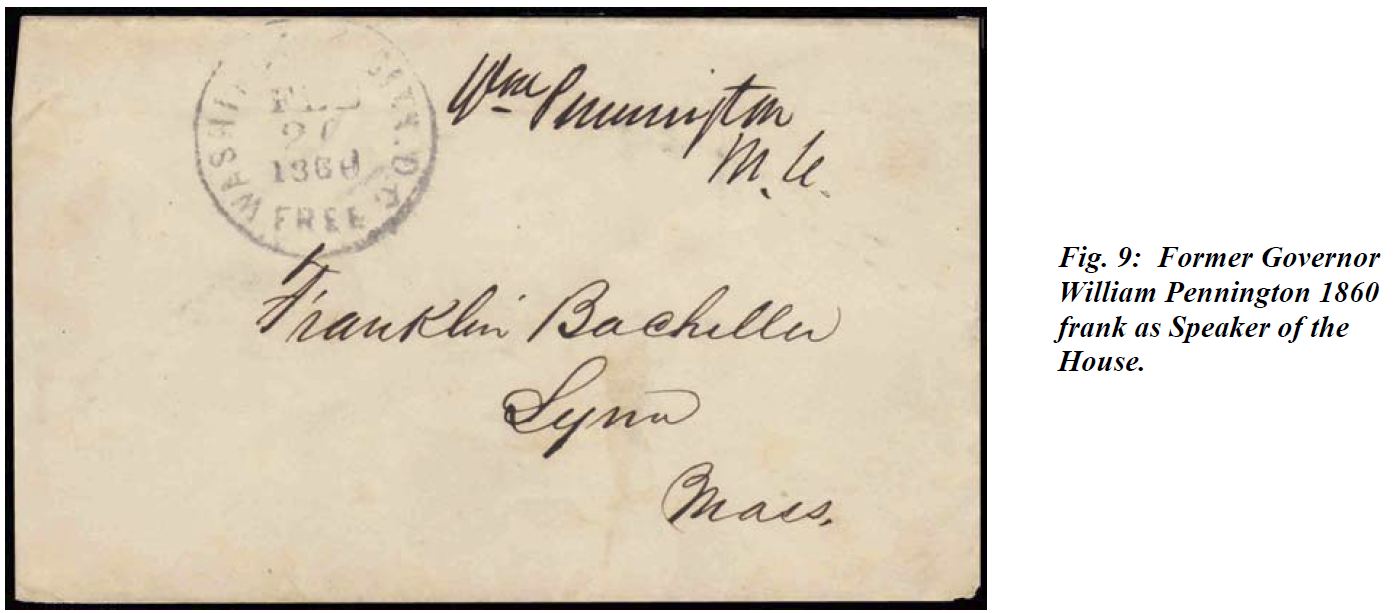 FREE
1860
Wm Pennington
M.C.
Franklin Bacheller
Lynn
Mass.
Fig. 9: Former Governor
William Pennington 1860
frank as Speaker of the
House.